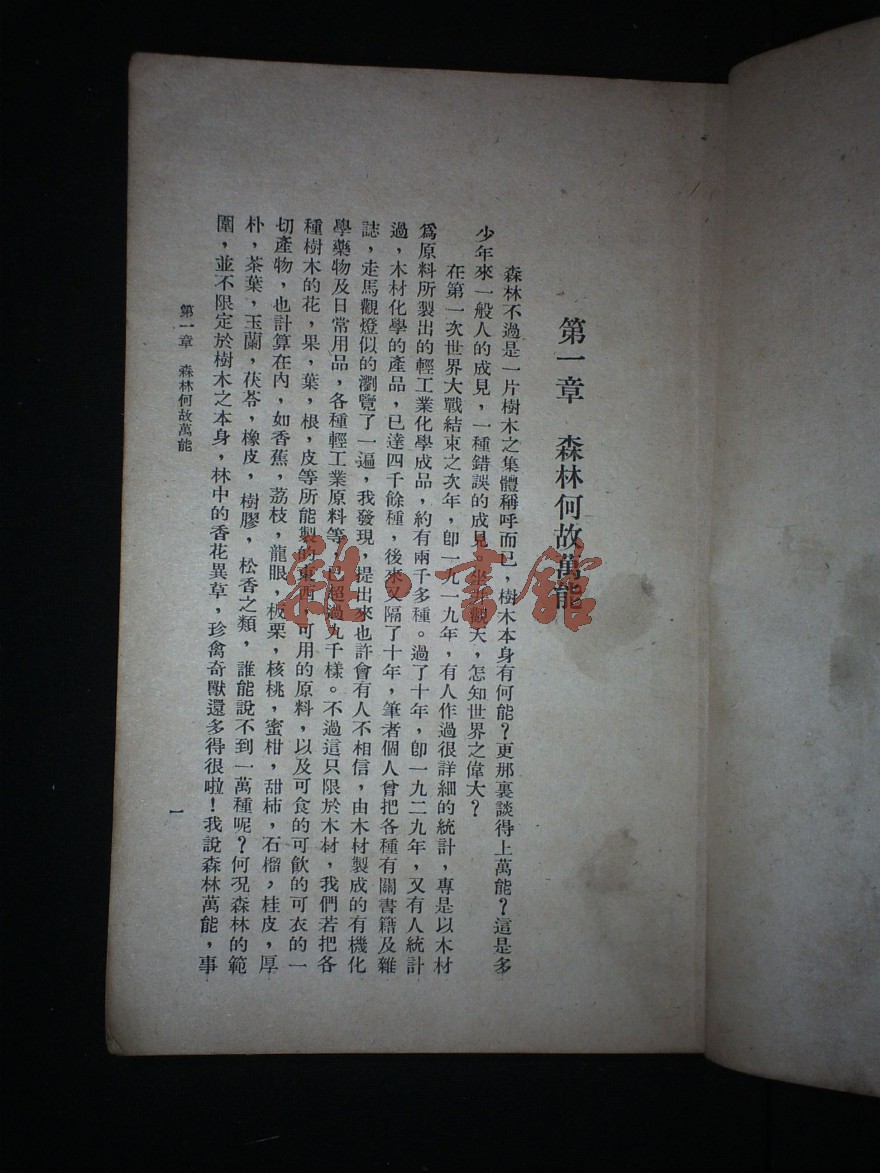 第一章　森林何故萬能
森林不過是一片樹木之集體稱呼而已，樹木本身有何能？更那裏談得上萬能？這是多
少年來一般人的成見，一種錯誤的成見，坐井觀天，怎知世界之偉大？
在第一次世界大戰結束之次年，卽一九一九年，有人作過很詳細的統計，專是以木材
爲原料所製出的輕工業化學成品，約有兩千多種。過了十年，卽一九二九年，又有人統計
過，木材化學的產品，已達四千餘種，後來又隔了十年，筆者個人曾把各種有關書籍及雜
誌，走馬觀燈似的瀏覽了一遍，我發現，提出來也許會有人不相信，由木材製成的有機化
學藥物及日常用品，各種輕工業原料等，已超過九千樣。不過這只限於木材，我們若把各
種樹木的花，果，葉，根，皮等所能製的東西，可用的原料，以及可食的可飲的可衣的一
切產物，也計算在內，如香蕉，荔枝，龍眼，板栗，核桃，蜜柑，甜柿，石榴，桂皮，厚
朴，茶葉，玉蘭，茯苓，橡皮，樹膠，松香之類，誰能說不到一萬種呢？何況森林的範
圍，並不限定於樹木之本身，林中的香花異草，珍禽奇獸還多得很啦！我說森林萬能，事
第一章　森林何故萬能
一
雜·書館